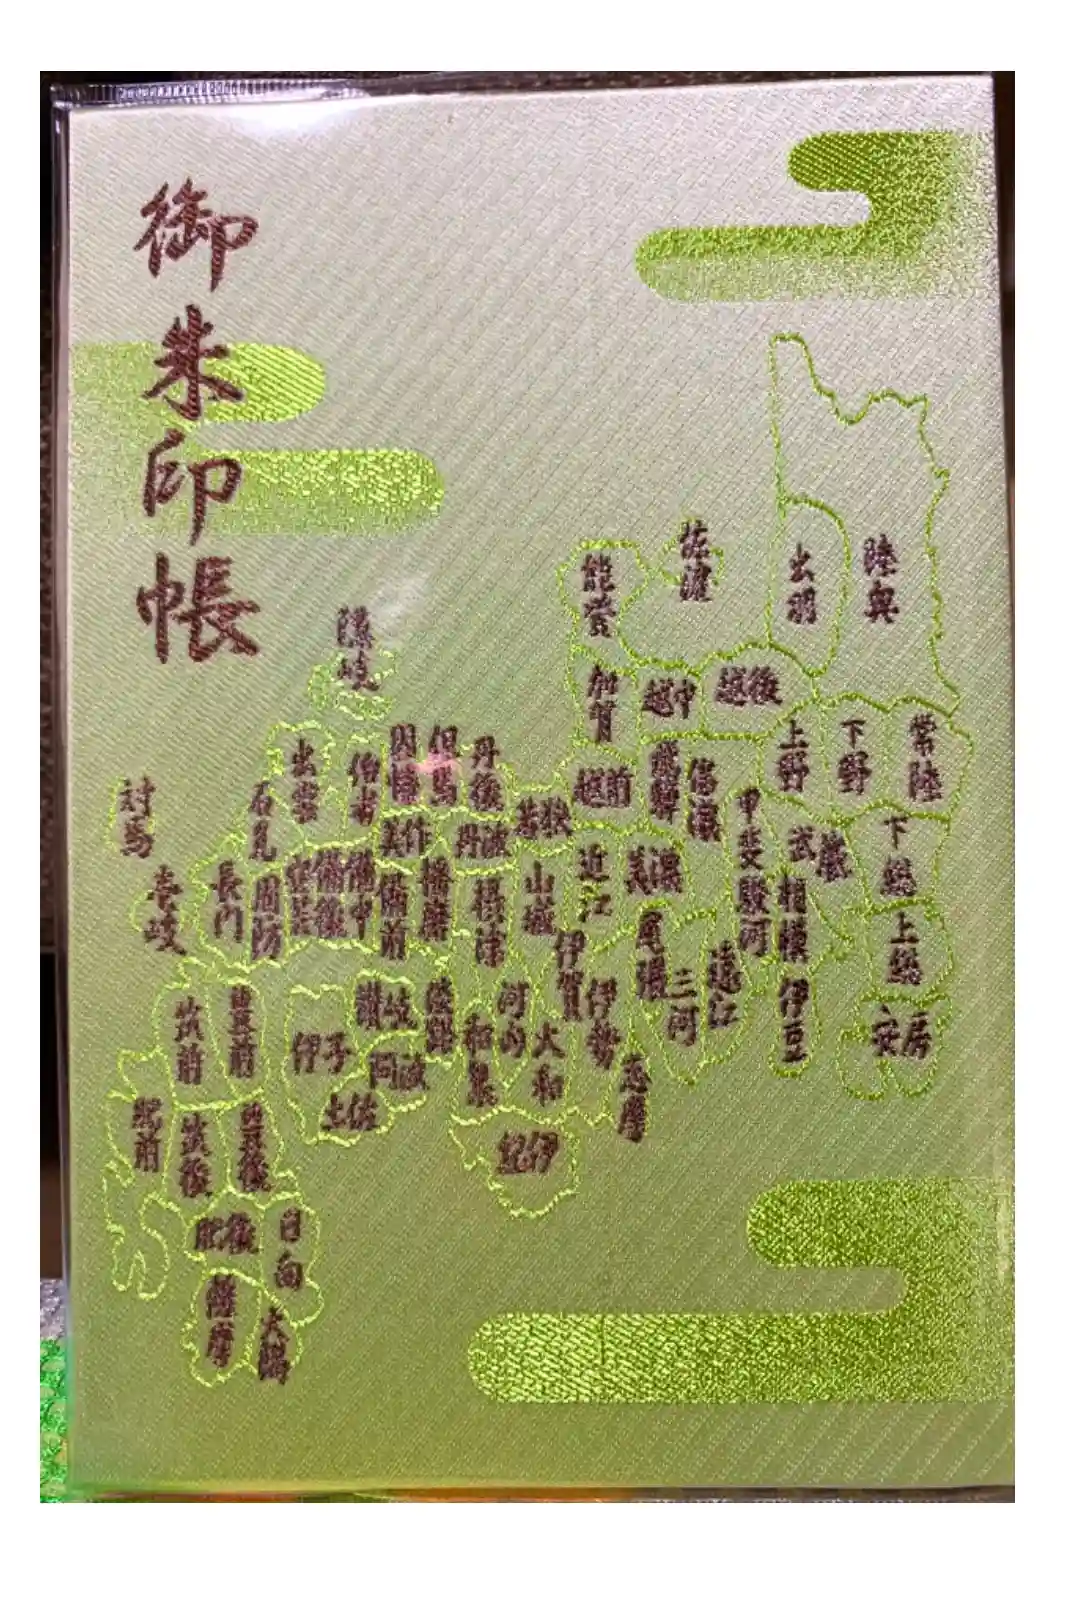 御朱印帳
陸奥
出羽
佐渡
能登
加賀
越中
越後
上野
下野
常陸
越前
飛騨
信濃
甲斐
武蔵
下総
上総
安房
相模
駿河
伊豆
遠江
三河
尾張
美濃
近江
若狭
山城
伊賀
伊勢
志摩
大和
河内
和泉
紀伊
摂津
丹波
丹後
但馬
因幡
美作
播磨
備前
備中
備後
安芸
伯耆
出雲
隠岐
石見
周防
長門
対馬
壱岐
淡路
讃岐
阿波
伊予
土佐
豊前
筑前
肥前
筑後
豊後
肥後
日向
薩摩
大隅